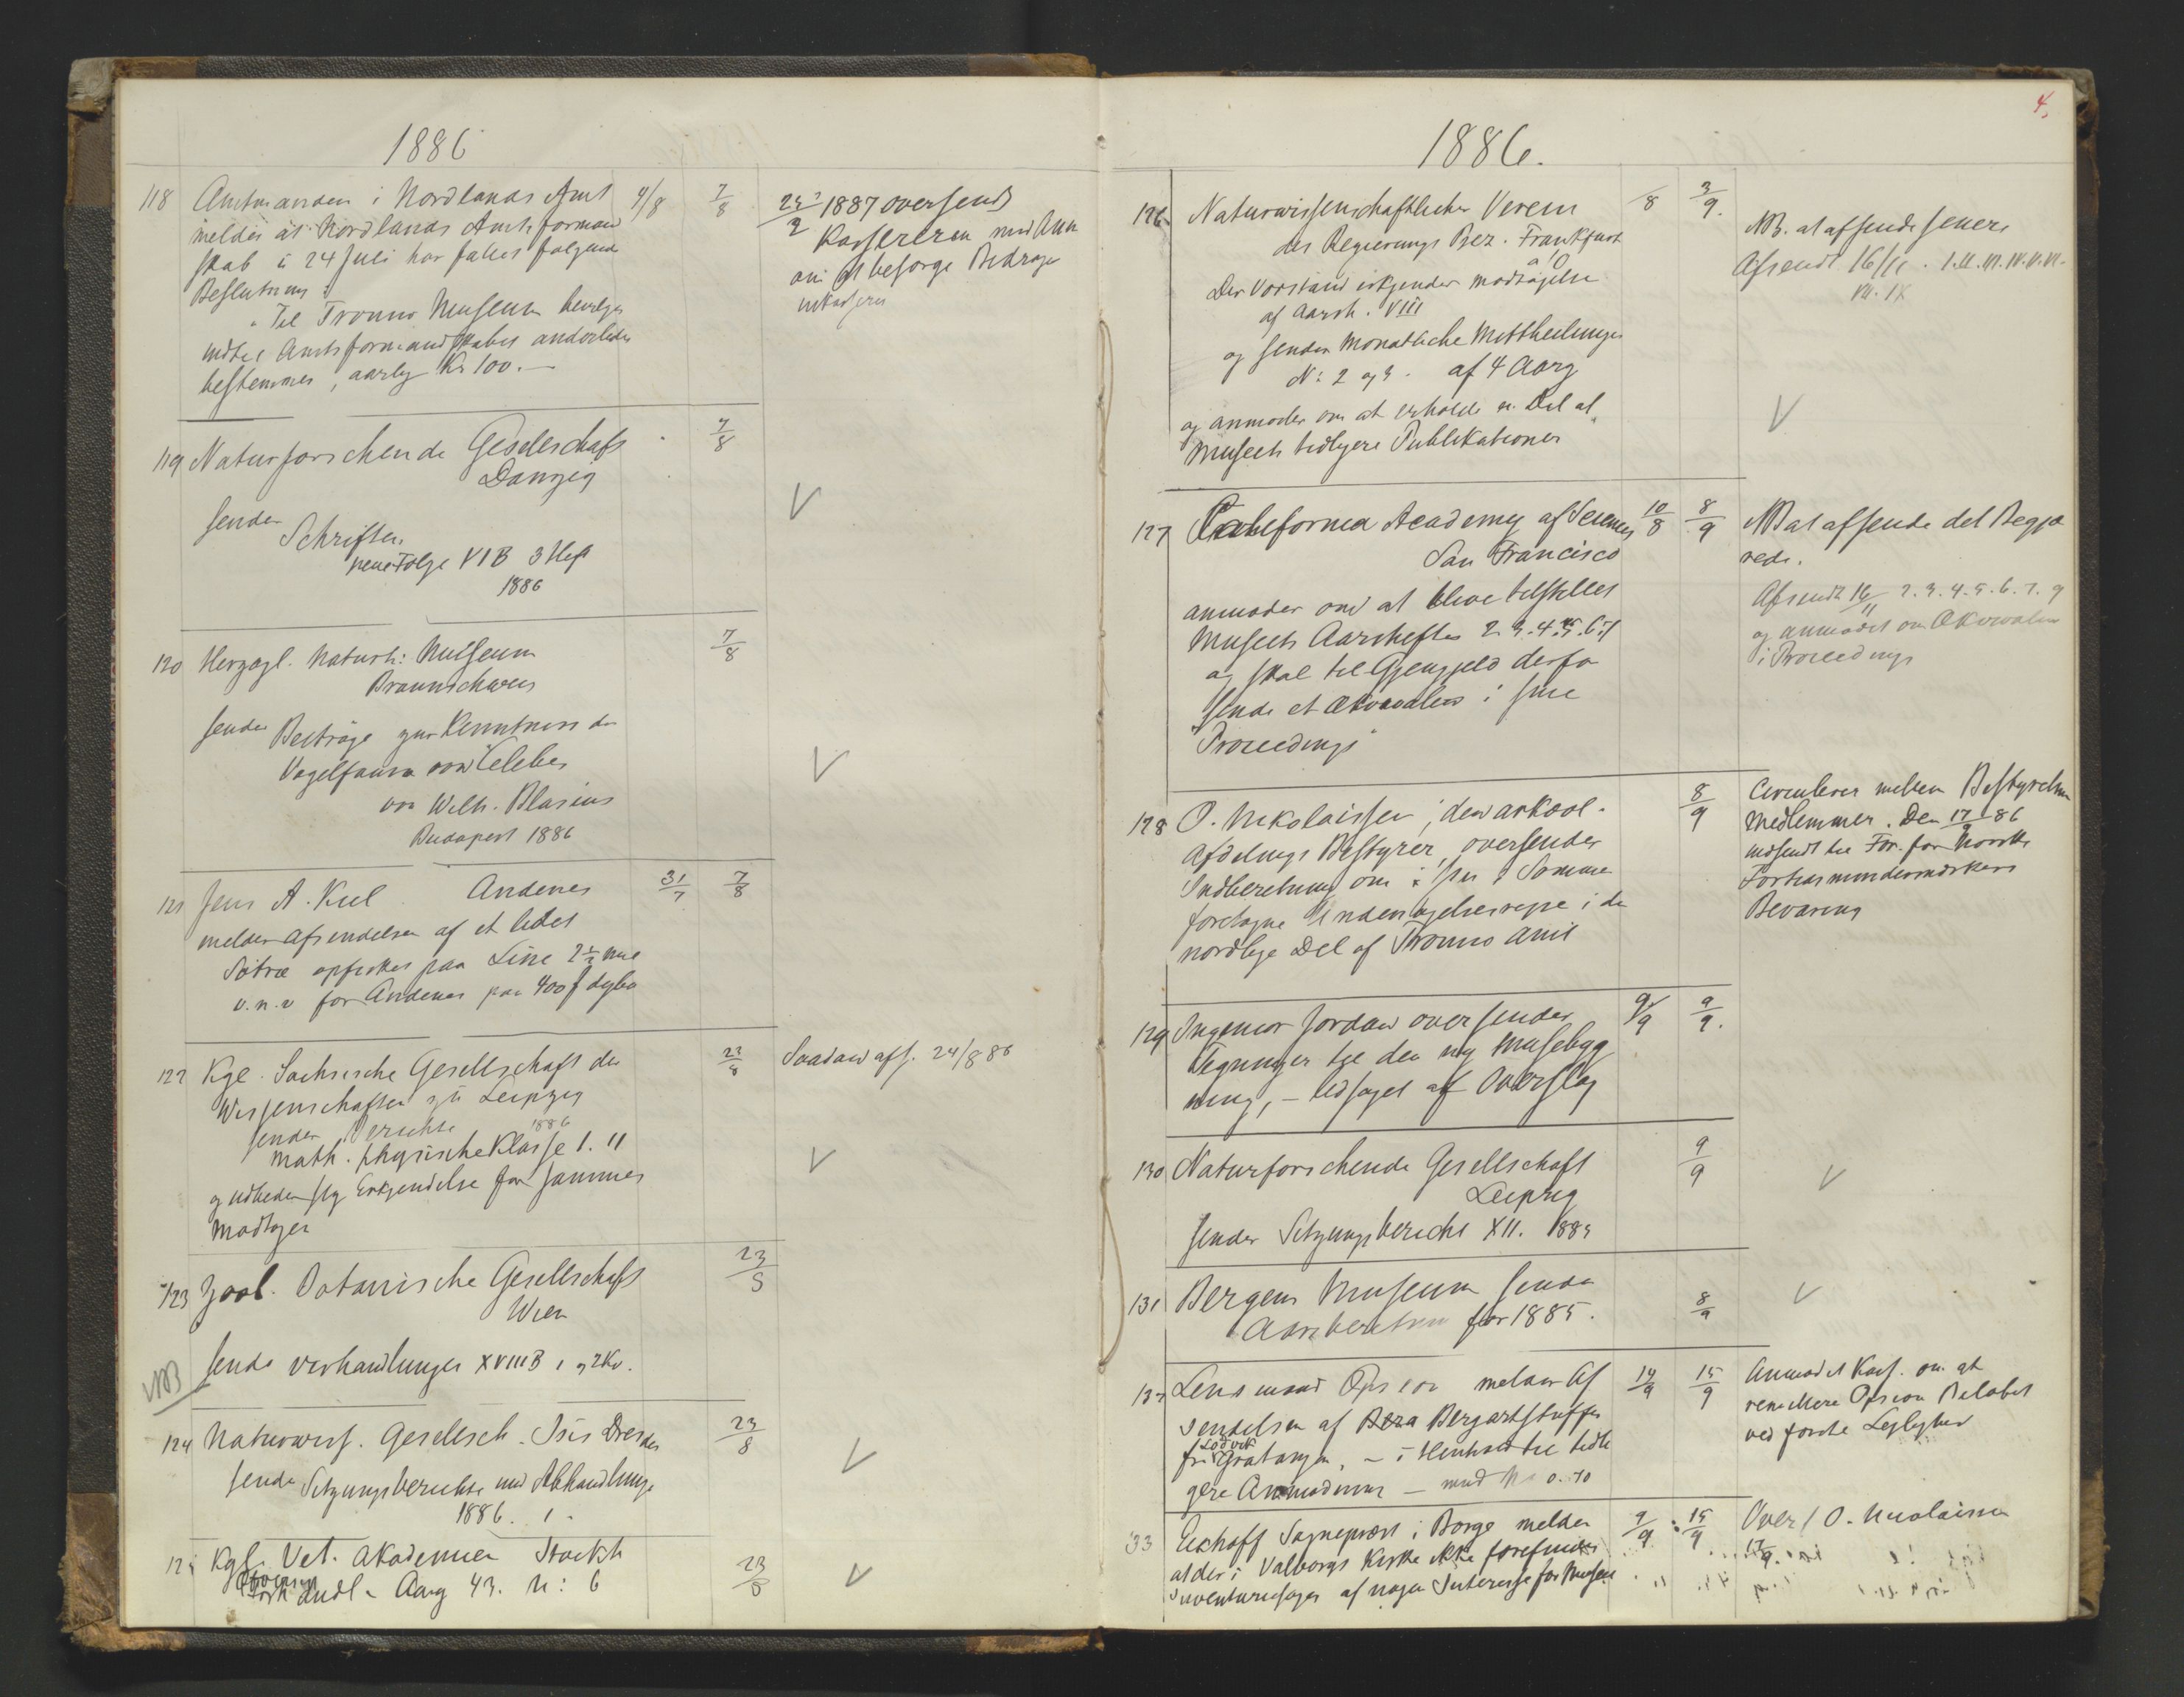 1886
118 Amtmanden i Nordlands Amt 4/8 7/8
melder at Nordlands Amtsformand
skab i 24 Juli har fattet følgende
Beslutning:
"Til Tromsø Museum bevilges
indtil Amtsformandskabet anderledes
bestemmer, aarlig Kr 100.—
1887 oversendt
Kassereren med Anm
om at besørge Bidraget
119 Naturforschende Gesellschaft 7/8
Danzig
sender
Schriften
neue Folge VI B 3 Heft
1886
V
120 Herzogl. Naturh: Museum 7/8
Braunschweig
sender Beiträge zur Kenntniss der
Vogelfauna von Celebes
von Wilh. Blasius
Budapest 1886
V
121 Jens A. Kiel Andenes 31/7 7/8
melder Afsendelsen af et lidet
Søtræ opfisket paa Line 2½ Mil
v.n.v for Andenes paa 400 f dybde
122 Kgl. Sachsische Gesellschaft der 23/8 Saadan afs. 24/8 86
Wissenschaften zu Leipzig
sender Berichte 1886
math. physische Klasse I. II
og udbeder sig Erkjendelse for sammes
Modtagelse
V
123 Zool. Botanische Gesellschaft 23/8
Wien
sender Verhandlungen XVIII B 1 og 2 Kv.
NB
124 Naturwiss. Gesellsch. Isis Dresden 23/8
sender Sitzungsberichte und Abhandlungen
1886. 1
V
125 Kgl. Vet. Akademien Stockh 23/8
Öfversigt
Förhandl. Aarg 43. N: 6
V
4.
1886.
126 Naturwissenschaftlicher Verein /8 3/9.
des Regierungs Bez. Frankfurt
a/O
Der Vorstand erkjender modtagelse
af Aarsh. VIII
og sender Monatliche Mittheilungen
N: 2 og 3. af 4 Aarg
og anmoder om at erholde en Del af
Museets tidligere Publikationer
NB. at afsende senere
Afsendt 16/11. I. II. III. IV. V. VI.
VII. IX
V
127 California Academy of Sciences 10/8 8/9
San Francisco
anmoder om at blive tilstillet
Museets Aarshefter 2.3.4.5.6.7
og skal til Gjengjeld derfor
sende et Ækvivalent i sine
"Proceedings"
NB at afsende det Begjæ
rede.
Afsendt 16/11 2.3.4.5.6.7.9
og anmodet om Ækvivalent
i Proceedings
128 O. Nikolaissen, den arkæol. 8/9
Afdelings Bestyrer, oversender
Indberetning om i Sommer
foretagne Undersøgelsesrejse i den
nordlige Del af Tromsø Amt
Circulerer mellem Bestyrelsens
Medlemmer. Den 17/9 86
indsendt til For. for Norske
Fortidsmindesmærkers
Bevaring
129 Ingeniør Jordan oversender 9/9 9/9.
Tegninger til den ny Musebyg
ning, – ledsaget af Overslag
130 Naturforschende Gesellschaft 9/9
Leipzig
sender Sitzungsbericht XII. 1885
V
131 Bergens Museum sender 8/9
Aarsberetning for 1885.
V
132 Lensmand melder Af 14/9 15/9
sendelsen af Bergartstuffer
fra Gratangen, – i Henhold til tidli
gere Anmodning – med Kr 0.70
Anmodet Kass. om at
remittere Beløbet
ved første Leilighed
133 Eckhoff Sogneprest i Borge melder 9/9 15/9
at der i Valbergs Kirke ikke forefindes
Inventariesager af nogen Interesse for Museet
Overs O. Nicolaissen
17/9.